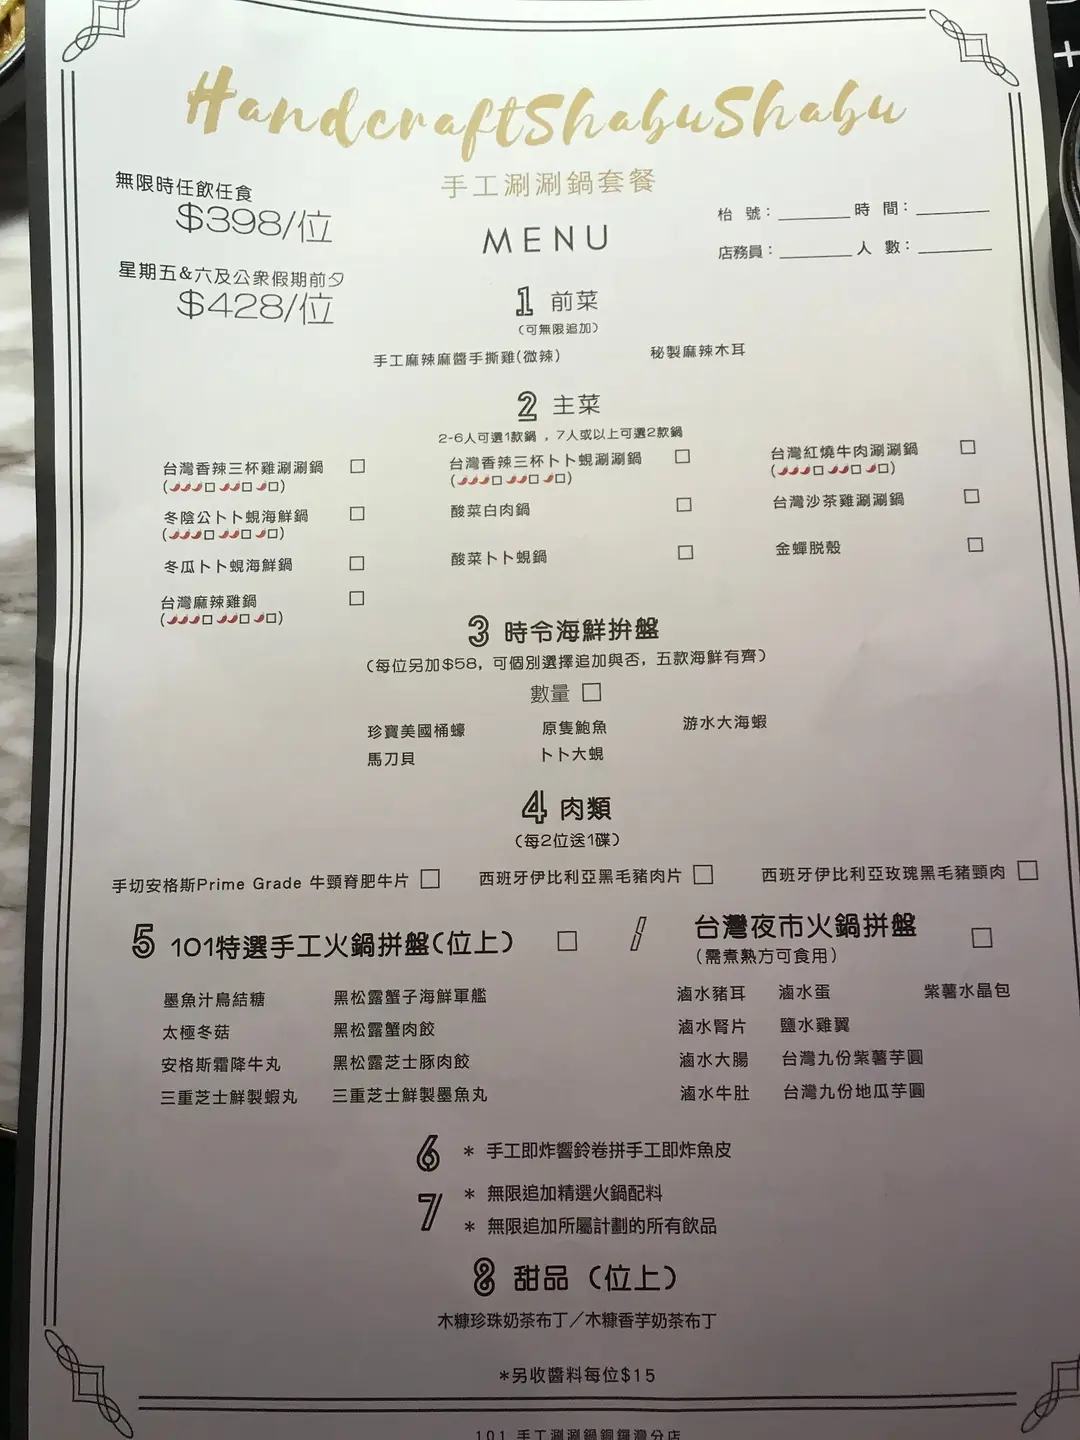 HandcraftShabuShabu
手工涮涮鍋套餐
MENU
無限時任飲任食
$398/位
星期五&六及公眾假期前夕
$428/位
枱 號：
時 間：
店務員：
人 數：
1 前菜
（可無限追加）
手工麻辣麻醬手撕雞(微辣)
秘製麻辣木耳
2 主菜
2-6人可選1款鍋 , 7人或以上可選2款鍋
台灣香辣三杯雞涮涮鍋 □
(🌶🌶🌶□ 🌶🌶□ 🌶□)
台灣香辣三杯卜卜蜆涮涮鍋 □
(🌶🌶🌶□ 🌶🌶□ 🌶□)
台灣紅燒牛肉涮涮鍋 □
(🌶🌶🌶□ 🌶🌶□ 🌶□)
冬陰公卜卜蜆海鮮鍋 □
(🌶🌶🌶□ 🌶🌶□ 🌶□)
酸菜白肉鍋 □
台灣沙茶雞涮涮鍋 □
冬瓜卜卜蜆海鮮鍋 □
酸菜卜卜蜆鍋 □
金蟬脱殼 □
台灣麻辣雞鍋 □
(🌶🌶🌶□ 🌶🌶□ 🌶□)
3 時令海鮮拚盤
（每位另加$58，可個別選擇追加與否，五款海鮮有齊）
數量 □
珍寶美國桶蠔
原隻鮑魚
游水大海蝦
馬刀貝
卜卜大蜆
4 肉類
（每2位送1碟）
手切安格斯Prime Grade 牛頸脊肥牛片 □
西班牙伊比利亞黑毛豬肉片 □
西班牙伊比利亞玫瑰黑毛豬頸肉 □
5 101特選手工火鍋拼盤(位上) □ / 台灣夜市火鍋拼盤 □
（需煮熟方可食用）
墨魚汁鳥結糖
黑松露蟹子海鮮軍艦
滷水豬耳
滷水蛋
紫薯水晶包
太極冬菇
黑松露蟹肉餃
滷水腎片
鹽水雞翼
安格斯霜降牛丸
黑松露芝士豚肉餃
滷水大腸
台灣九份紫薯芋圓
三重芝士鮮製蝦丸
三重芝士鮮製墨魚丸
滷水牛肚
台灣九份地瓜芋圓
6 * 手工即炸響鈴卷拼手工即炸魚皮
7 * 無限追加精選火鍋配料
* 無限追加所屬計劃的所有飲品
8 甜品（位上）
木糠珍珠奶茶布丁／木糠香芋奶茶布丁
*另收醬料每位$15
101 手工涮涮鍋銅鑼灣分店